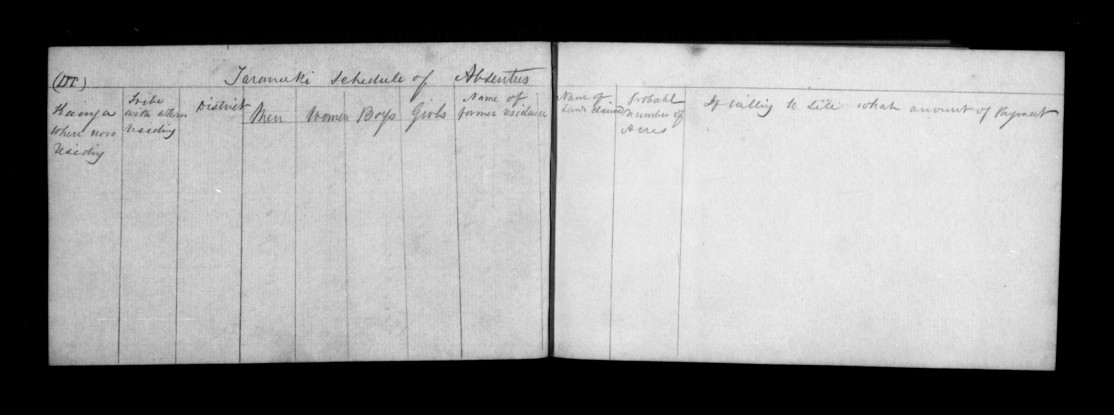 (III) Taranaki Schedule of Absentees
Kainga
where now
residing
Tribe
with whom
residing
District
Men
Women
Boys
Girls
Name of
former residence
Name of
Land claimed
Probable
Number of
Acres
If willing to sell what amount of Payment